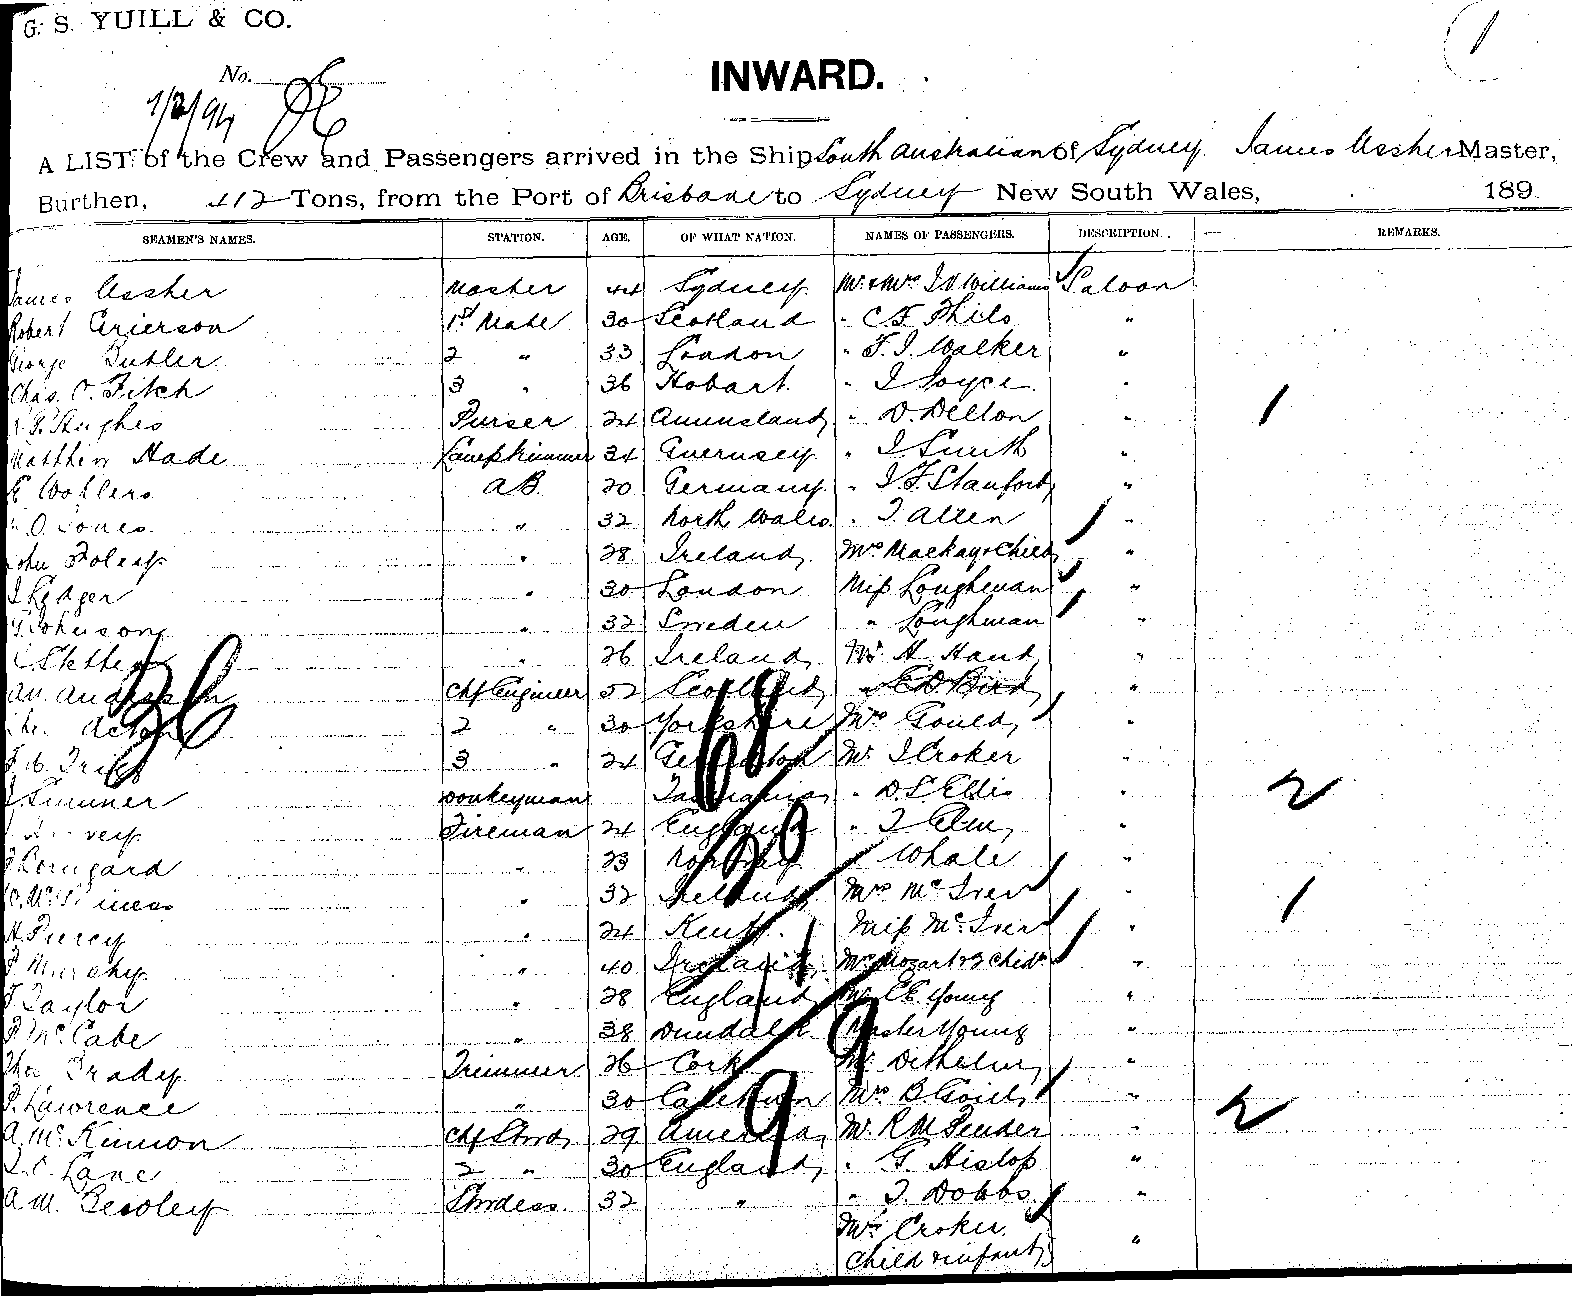 G. S. YUILL & CO.
1
No.
INWARD.
A LIST of the Crew and Passengers arrived in the Ship South Australian of Sydney James Ussher Master,
Burthen, 412 Tons, from the Port of Brisbane to Sydney New South Wales, 189
SEAMEN'S NAMES. STATION. AGE. OF WHAT NATION. NAMES OF PASSENGERS. DESCRIPTION. REMARKS.
James Ussher Master 44 Sydney Mr & Mrs J W Williams Saloon
Robert Grierson 1st Mate 30 Scotland " C F Philo "
George Butler 2 " 33 London " F. J. Walker "
Chas. O. Fitch 3 " 36 Hobart " J Joyce "
Hughes Purser 24 Queensland " D. Dillon " 1
Matthew Hade Lamptrimmer 34 Guernsey " J Smith "
E Wohlers AB 20 Germany " J. F. Stanford "
O. Jones " 32 North Wales " J. Allen "
John Foley " 28 Ireland Mrs Mackay & Child "
J Ledger " 30 London Miss Loughman "
Johnson " 32 Sweden " Loughman "
" 26 Ireland Mr H Hand "
Anderson Chf Engineer 52 Scotland " E D Bird "
Acton 2 " 30 Yorkshire Mrs Gould "
3 " 24 Mr J Croker "
Donkeyman Tasmania " D. S. Ellis " 2
Fireman 24 England " J "
" 23 Norway " Whale "
" 32 Ireland Mrs McIver " 1
H Piercy " 24 Kent Miss McIver "
P Murphy " 40 Ireland Mrs Mozart & 3 Childn "
J Taylor " 28 England Mr C E Young "
P McCabe " 38 Dundalk Master Young "
Thos Grady Trimmer 26 Cork Mr "
P. Lawrence " 30 Mrs B. " 2
A McKinnon Chf Stwd 29 America Mr R M Fender "
J. C. Lane 2 " 30 England " G Hislop "
A M. Stwdess 32 " " J. Dobbs "
Mrs Croker
Child & infant "